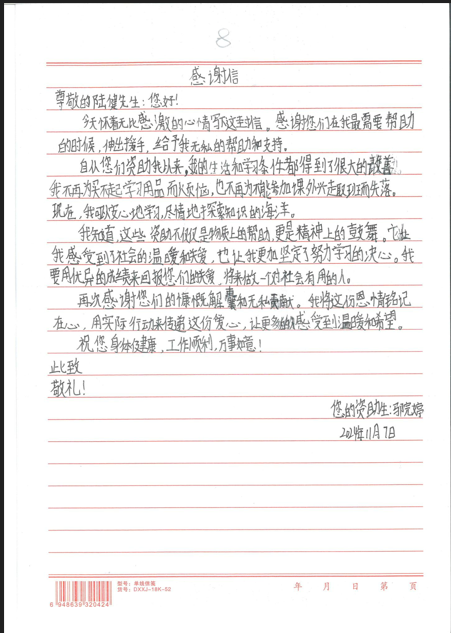 8
感谢信
尊敬的陆健先生:您好!
今天怀着无比感激的心情写下这封信。感谢您们在我最需要帮助
的时候,伸出援手,给予我无私的帮助和支持。
自从您们资助我以来,我的生活和学习条件都得到了很大的改善!
我不再为买不起学习用品而烦恼,也不再为不能参加课外兴趣班而失落。
现在,我可以安心地学习,尽情地去探索知识的海洋。
我知道,这些资助不仅仅是物质上的帮助,更是精神上的鼓舞。它让
我感受到了社会的温暖和关爱,也让我更加坚定了努力学习的决心。我
要用优异的成绩来回报您们的关爱,将来做一个对社会有用的人。
再次感谢您们的慷慨解囊和无私奉献。我将这份恩情铭记
在心,用实际行动来传递这份爱心,让更多的人感受到温暖和希望。
祝您身体健康,工作顺利,万事如意!
此致
敬礼!
您的资助生:婷
2024年11月7日
型号:单线信笺
货号:DXXJ-16K-32
6 948639 320424
年 月 日 第 页